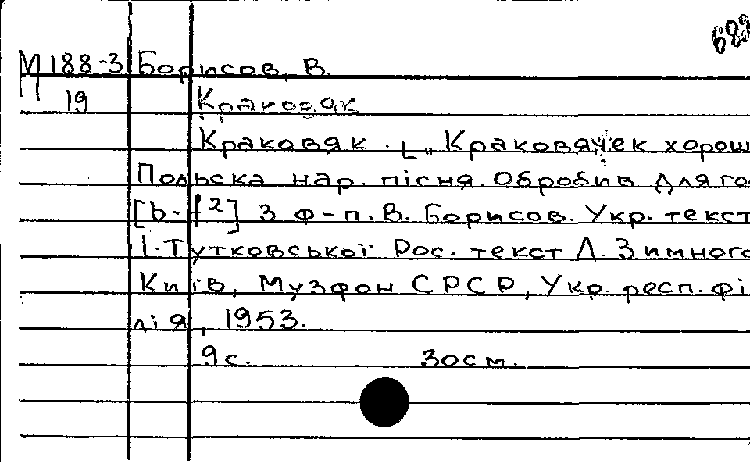 689
М 188-3 Борисов, В.
19 Краковяк
Краковяк. [„Краковячек хорош
Польска нар. пісня. Обробив для го
[b-f²] з ф-п. В. Борисов. Укр. текст
І. Тутковської. Рос. текст Л. Зимного
Київ, Музфон СРСР, Укр. респ. фі
лія, 1953.
9 с. 30 см.